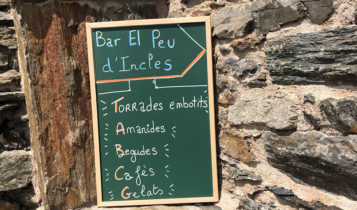 Bar El Peu
d'Incles
Torrades embotits
Amanides
Begudes
Cafès
Gelats